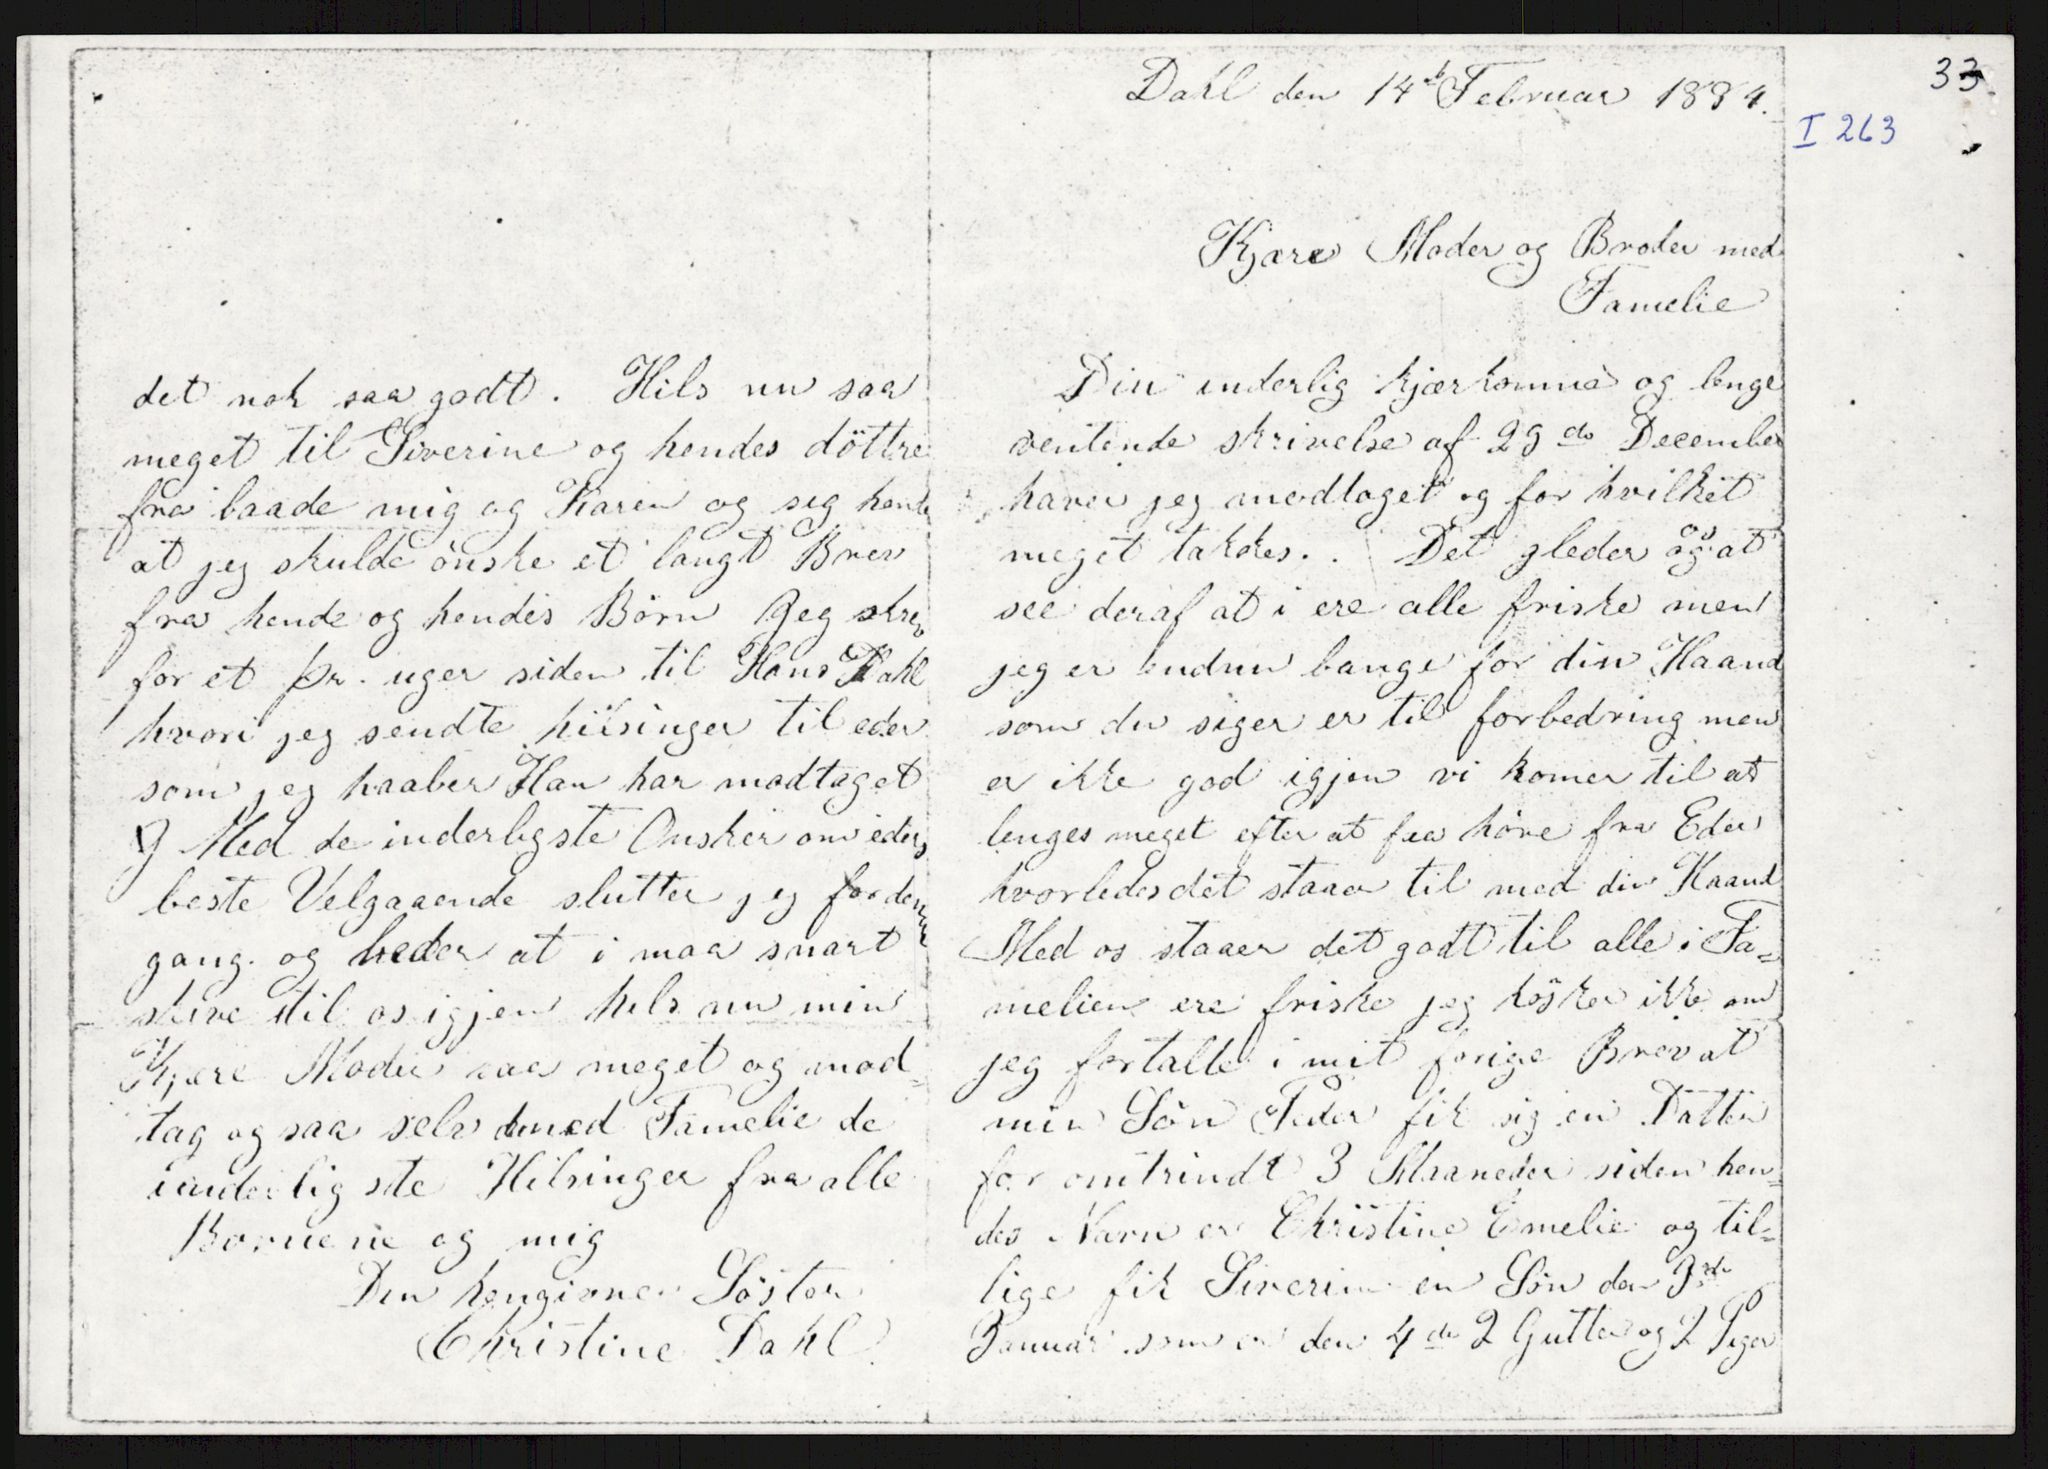 33.
I 263
Dahl den 14d Februar 1884.
Kjære Moder og Broder med
Famelie
Din inderlig kjærkomne og lenge
ventende skrivelse af 29 de December
haver jeg modtaget og for hvilket
meget takkes. Det gleder os at
see deraf at i ere alle friske men
jeg er endnu bange for din Haand
som du siger er til forbedring men
er ikke god igjen vi komer til at
lenges meget efter at faa høre fra Eder
hvorledes det staaer til med din Haand
Med os staaer det godt til alle i Fa=
melien ere friske jeg høsker ikke om
jeg fortalte i mit forige Brev at
min Sön Peder fik sig en Datter
for omtrindt 3 Maaneder siden hen=
des Navn er Christine Emelie og til=
lige fik Siverine en Sön den 3de
Januar som er den 4de 2 Gutter og 2 Piger
det nok saa godt. Hils nu saa
meget til Siverine og hendes döttre
fra baade mig og Karen og sig hende
at jeg skulde önske et langt Brev
fra hende og hendes Börn Jeg skrev
for et Pr. uger siden til Hans Dahl
hvori jeg sendte hilsinger til eder
som jeg haaber Han har modtaget
Med de inderligste Onsker om eders
beste Velgaaende slutter jeg for denne
gang og beder at i maa snart
skive til os igjen hils nu min
Kjære Moder saa meget og mod=
tag og saa selv med Famelie de
inderligste Hilsinger fra alle
Bornene og mig
Din hengivne Söster
Christine Dahl